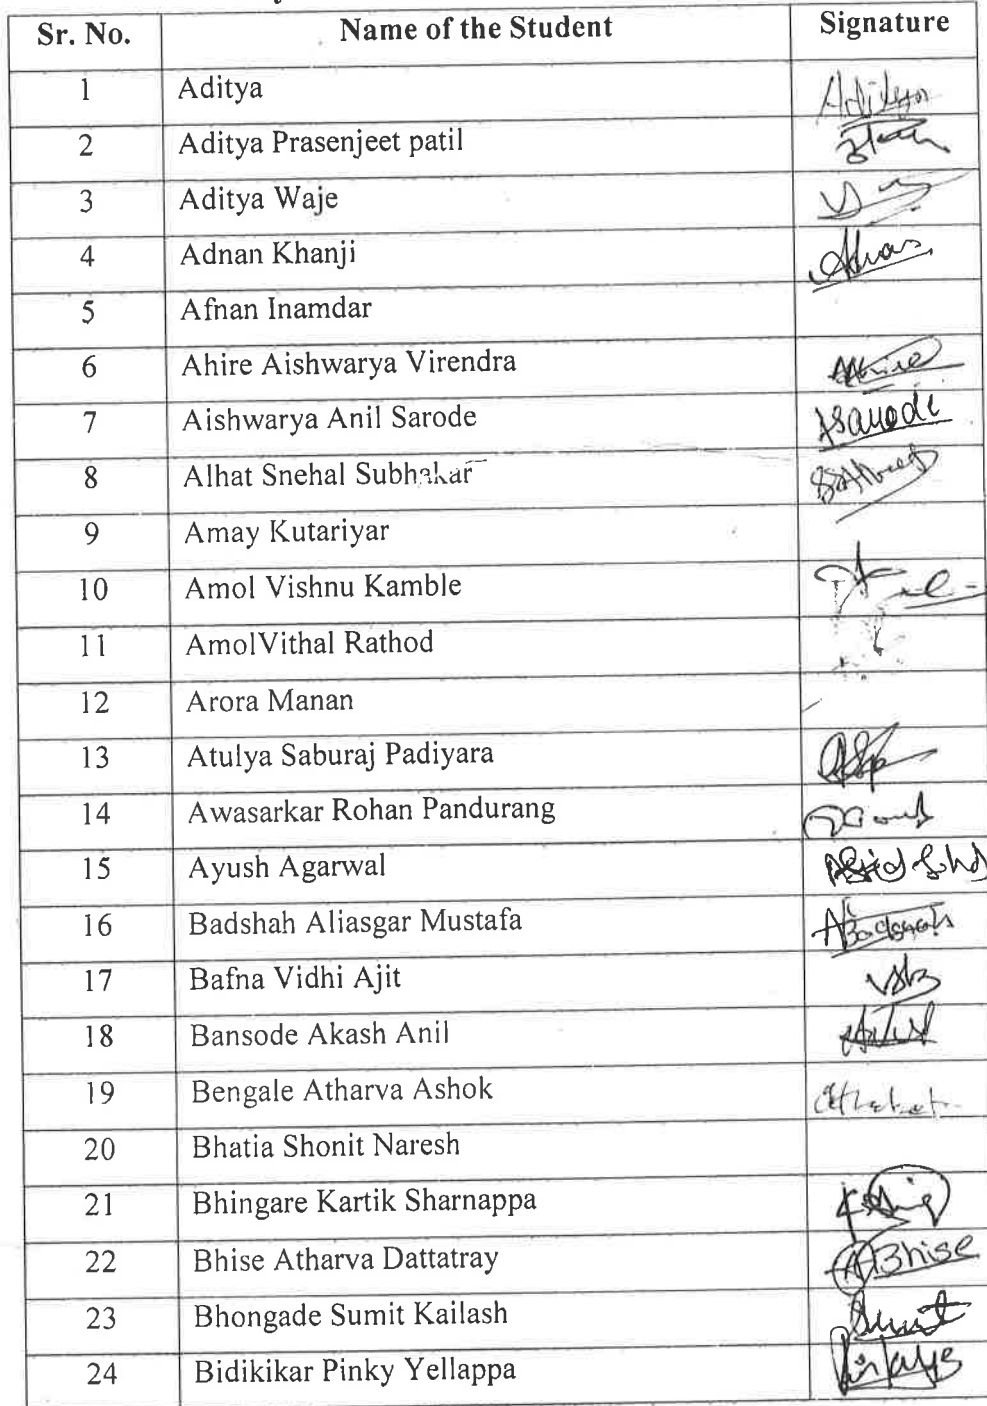 Sr. No. Name of the Student Signature
1 Aditya Aditya
2 Aditya Prasenjeet patil
3 Aditya Waje
4 Adnan Khanji
5 Afnan Inamdar
6 Ahire Aishwarya Virendra Ahire
7 Aishwarya Anil Sarode
8 Alhat Snehal Subhakar
9 Amay Kutariyar
10 Amol Vishnu Kamble
11 AmolVithal Rathod
12 Arora Manan
13 Atulya Saburaj Padiyara
14 Awasarkar Rohan Pandurang
15 Ayush Agarwal
16 Badshah Aliasgar Mustafa
17 Bafna Vidhi Ajit
18 Bansode Akash Anil
19 Bengale Atharva Ashok
20 Bhatia Shonit Naresh
21 Bhingare Kartik Sharnappa
22 Bhise Atharva Dattatray ABhise
23 Bhongade Sumit Kailash Sumit
24 Bidikikar Pinky Yellappa